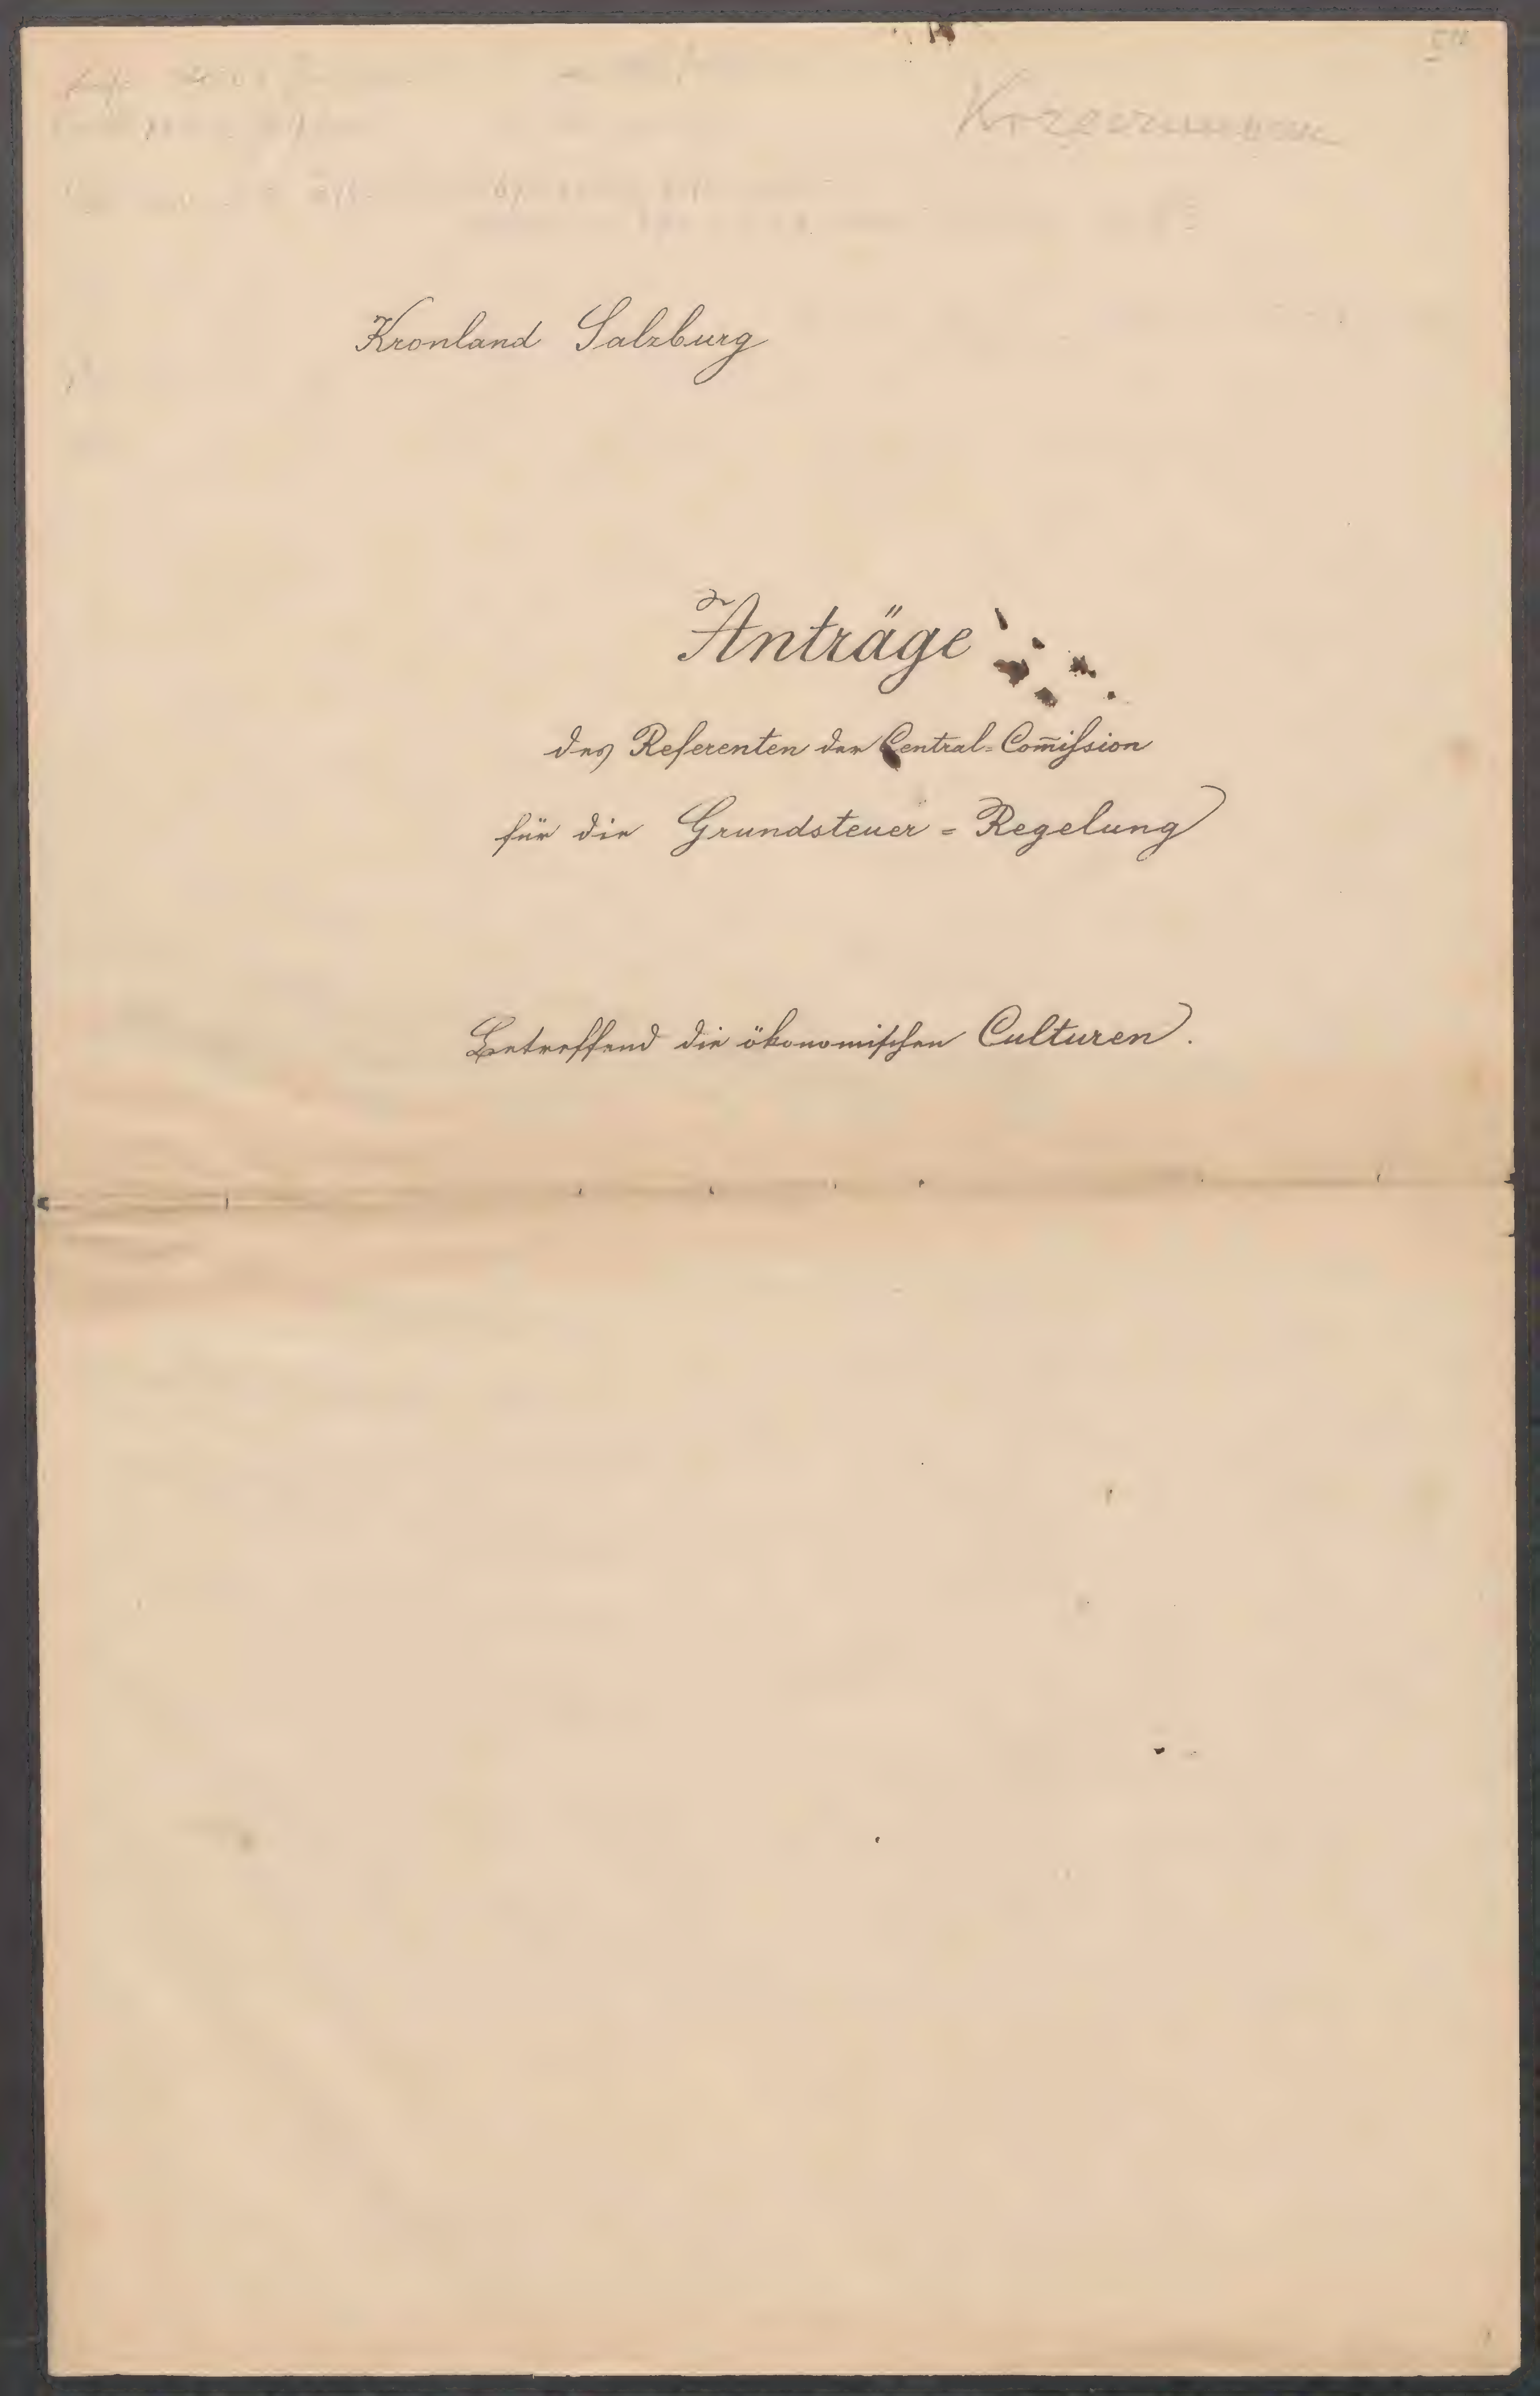 Kronland Salzburg
Anträge
des Referenten der Central-Com̅ission
für die Grundsteuer-Regelung
Betreffend die ökonomischen Culturen.